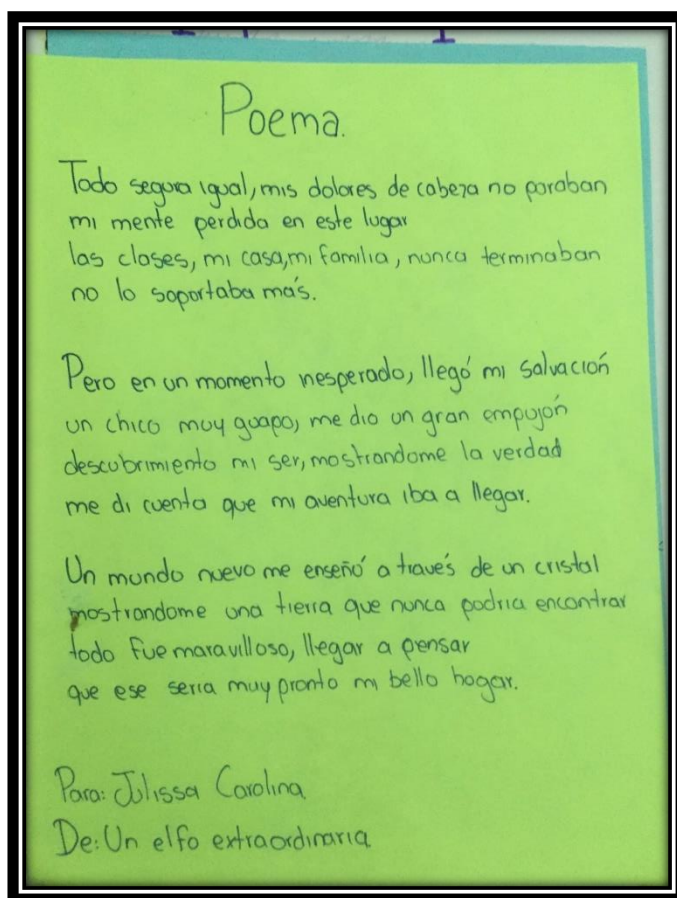 Poema.
Todo seguia igual, mis dolores de cabeza no paraban
mi mente perdida en este lugar
las clases, mi casa, mi familia, nunca terminaban
no lo soportaba más.
Pero en un momento inesperado, llegó mi salvación
un chico muy guapo, me dio un gran empujón
descubrimiento mi ser, mostrandome la verdad
me di cuenta que mi aventura iba a llegar.
Un mundo nuevo me enseñó a través de un cristal
mostrandome una tierra que nunca podria encontrar
todo fue maravilloso, llegar a pensar
que ese seria muy pronto mi bello hogar.
Para: Julissa Carolina
De: Un elfo extraordinaria